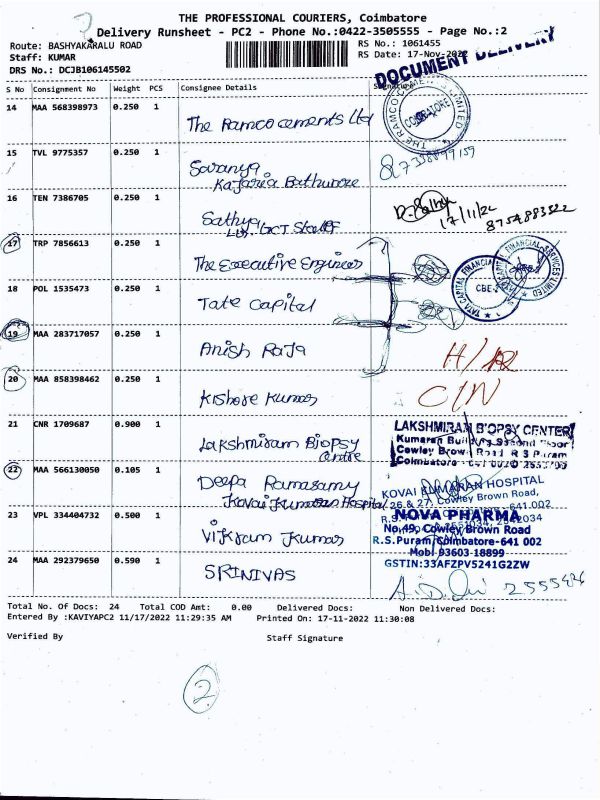 THE PROFESSIONAL COURIERS, Coimbatore
Delivery Runsheet - PC2 - Phone No.:0422-3505555 - Page No.:2
Route: BASHYAKARALU ROAD
RS No.: 1061455
Staff: KUMAR
RS Date: 17-Nov-2022
DRS No.: DCJB106145502
DOCUMENT DELIVERY
S No Consignment No Weight PCS Consignee Details Signature
14 MAA 568398973 0.250 1 The Ramco cements Ltd
THE RAMCO CEMENTS LIMITED
COIMBATORE
15 TVL 9775357 0.250 1 Saranya
Kajaria Bathware
16 TEN 7386705 0.250 1 Sathya
D. Sathya
17/11/22
17 TRP 7856613 0.250 1 The Executive Engineer
18 POL 1535473 0.250 1 Tate Capital
TATA CAPITAL FINANCIAL SERVICES LIMITED
CBE-2
19 MAA 283717057 0.250 1 Anish Raja
20 MAA 858398462 0.250 1 Kishore Kumar
21 CNR 1709687 0.900 1 Lakshmiram Biopsy
Centre
LAKSHMIRAM BIOPSY CENTER
Cowley Brown Road R S Puram
22 MAA 566130050 0.105 1 Deepa Ramasamy
Kovai Kumaran Hospital
KOVAI KUMARAN HOSPITAL
26 & 27, Cowley Brown Road,
23 VPL 334404732 0.500 1 Vikram Kumar
NOVA PHARMA
No.49, Cowley Brown Road
R.S.Puram, Coimbatore-641 002
Mobl 93603-18899
GSTIN:33AFZPV5241G2ZW
24 MAA 292379650 0.590 1 SRINIVAS
Total No. Of Docs: 24 Total COD Amt: 0.00 Delivered Docs: Non Delivered Docs:
Entered By :KAVIYAPC2 11/17/2022 11:29:35 AM Printed On: 17-11-2022 11:30:08
Verified By Staff Signature
2